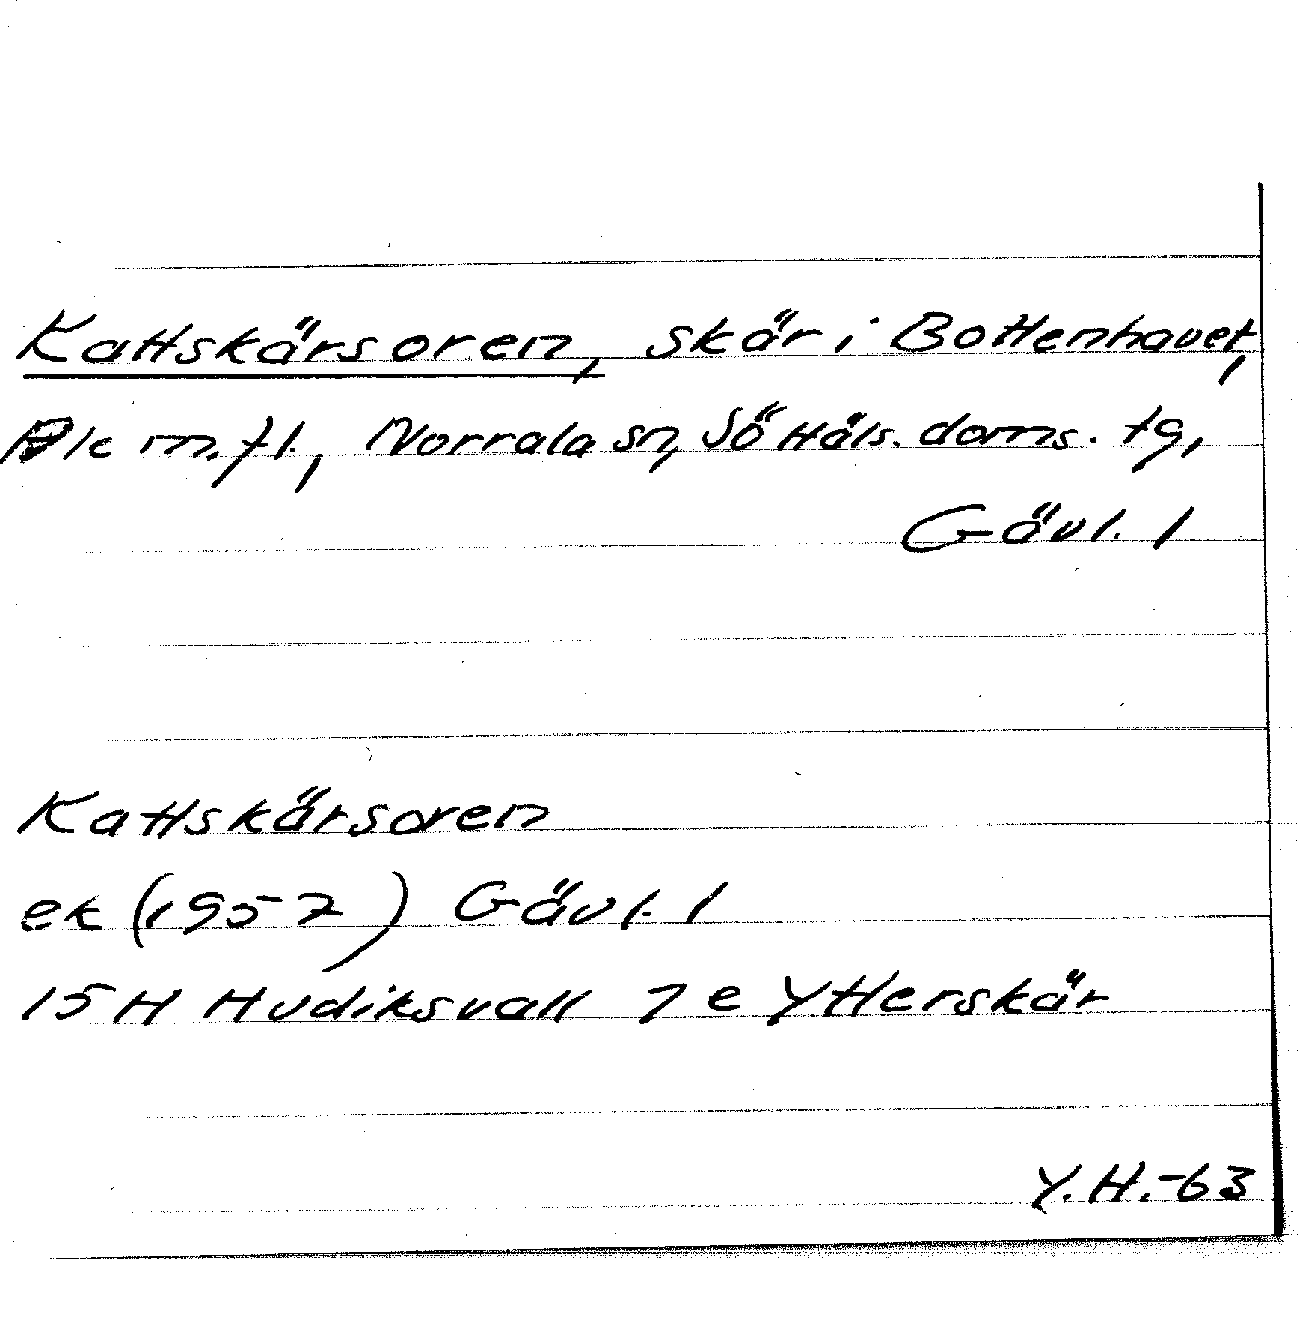 Kattskärsoren, skär i Bottenhavet,
Ale m.fl., Norrala sn, Sö Häls. doms. tg,
Gävl. l
Kattskärsoren
ek (1957) Gävl. l
15H Hudiksvall 7e Ytterskär
Y.H.-63